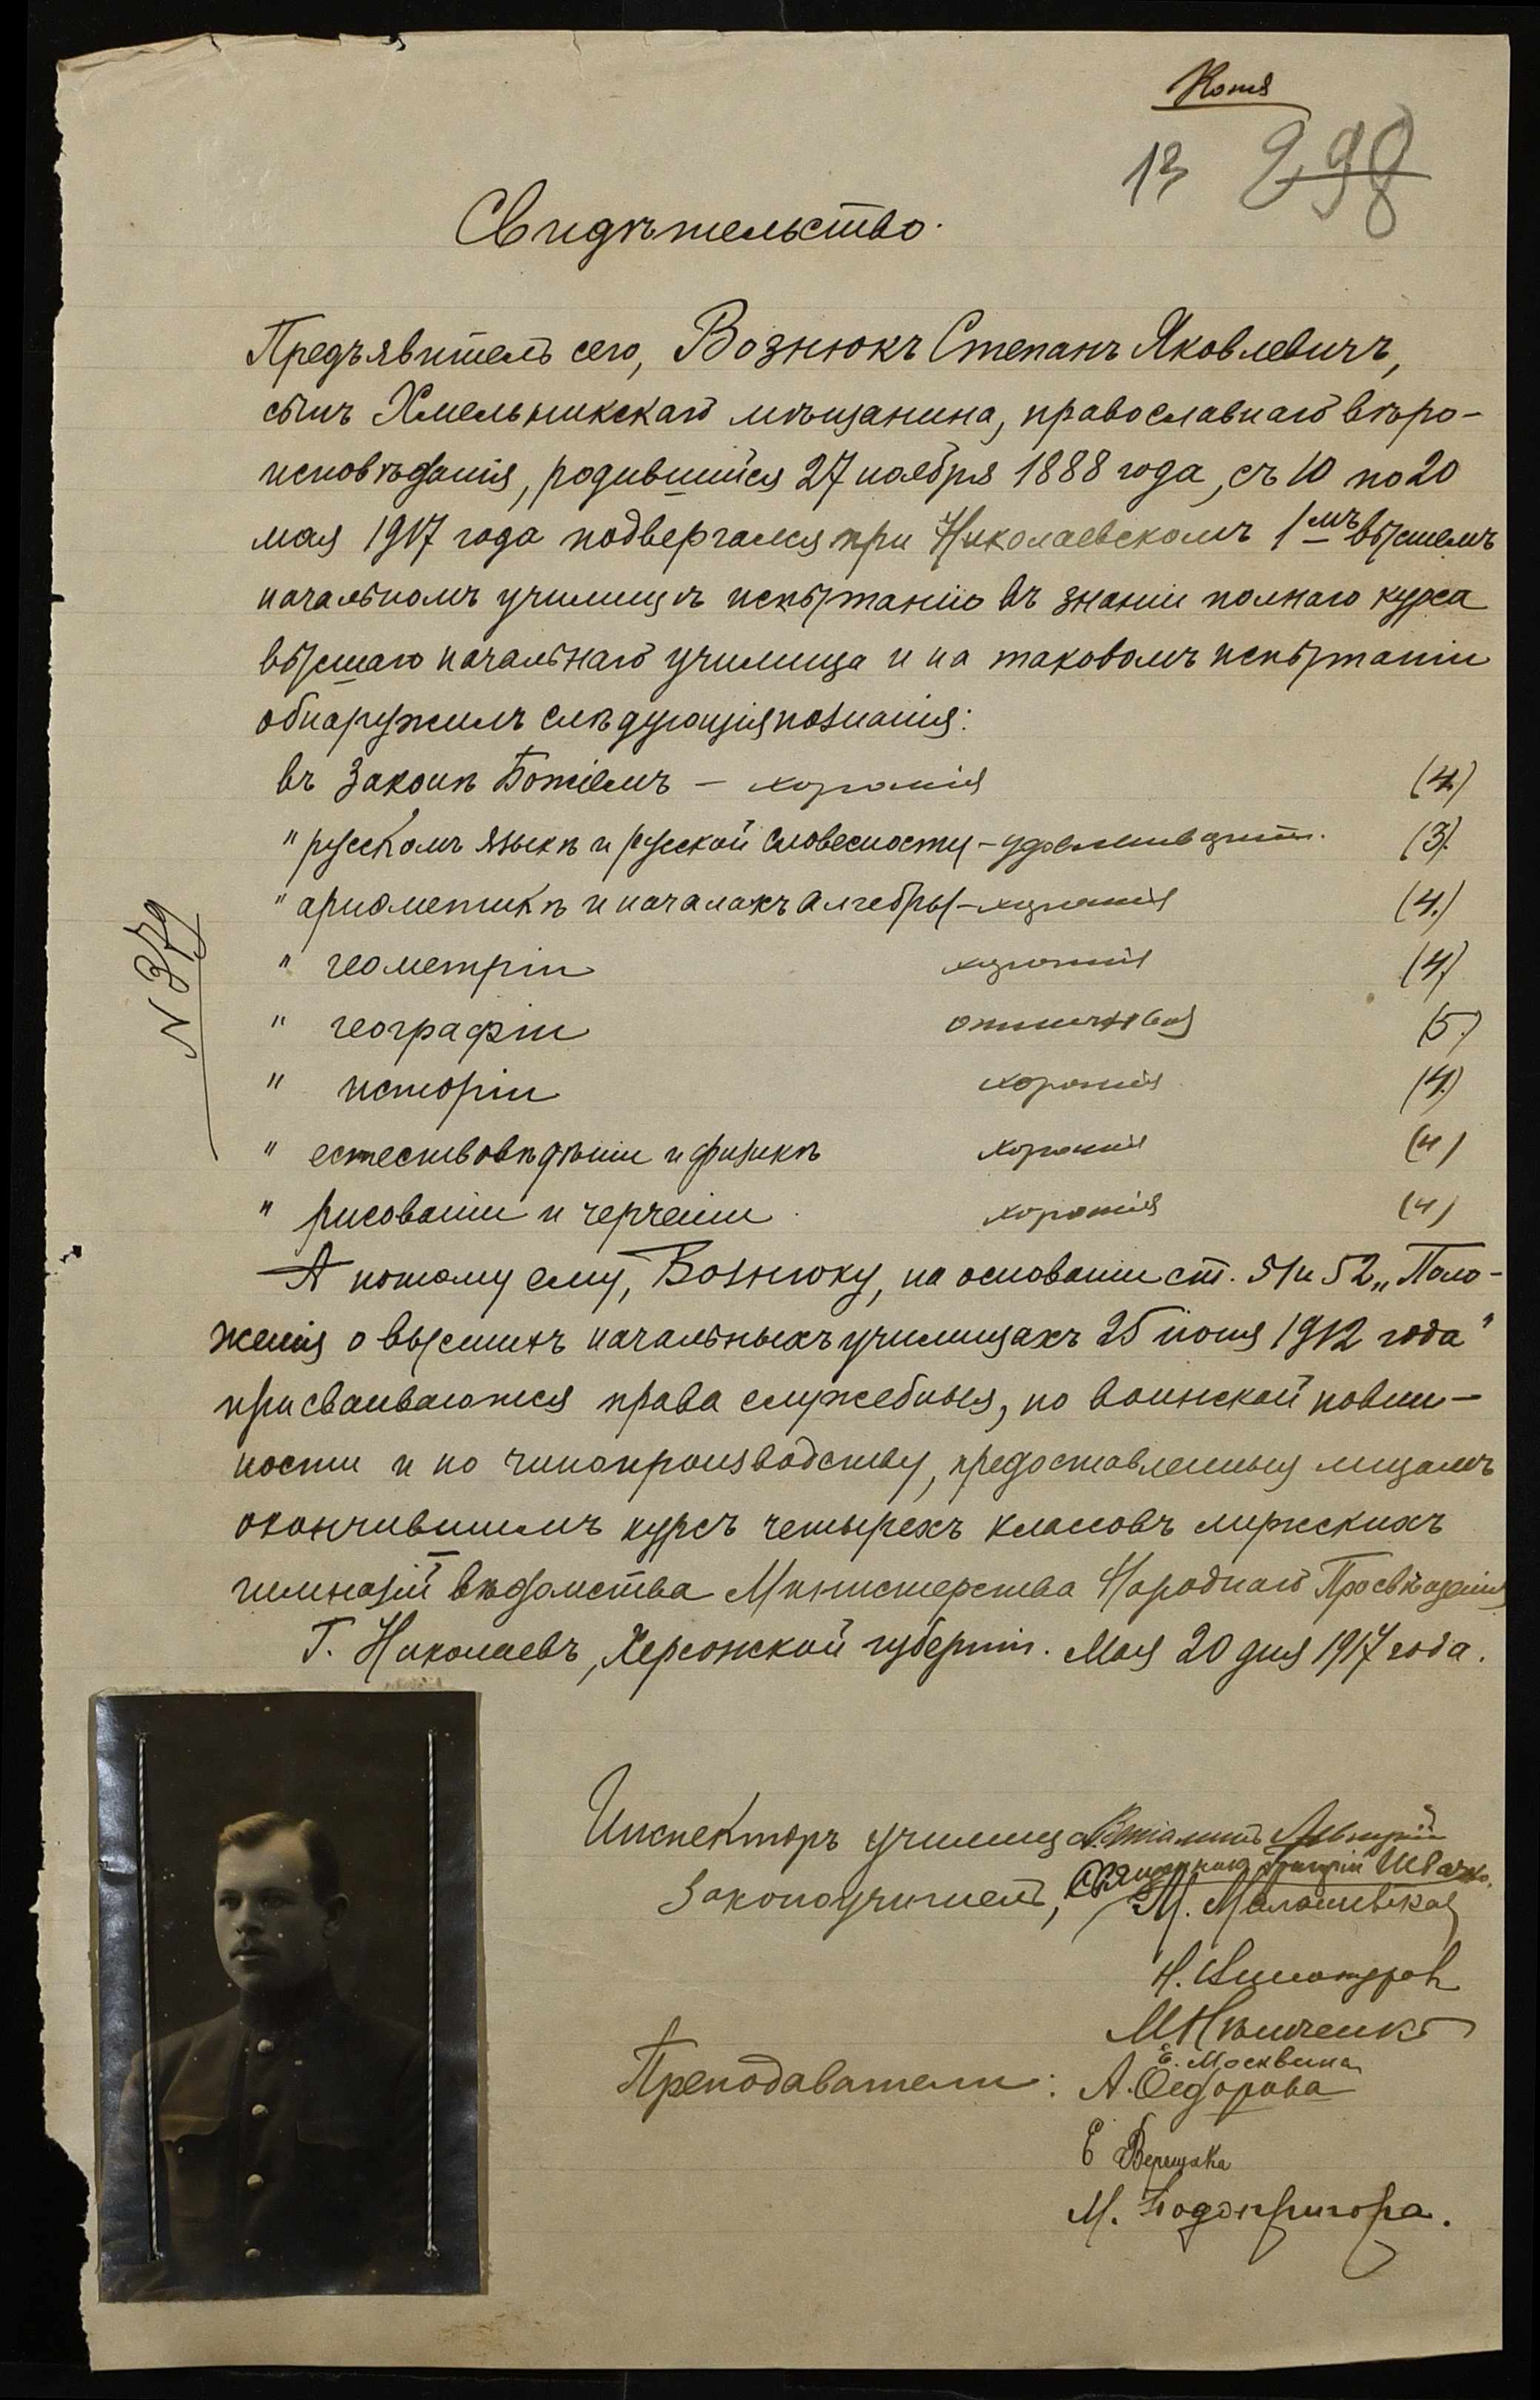 Копія
13 298
Свидѣтельство.
Предъявитель сего, Вознюкъ Степанъ Яковлевичъ,
сынъ Хмельникскаго мѣщанина, православнаго вѣро-
исповѣданія, родившійся 27 ноября 1888 года, съ 10 по 20
мая 1917 года подвергался при Николаевскомъ 1мъ высшемъ
начальномъ училищѣ испытанію въ знаніи полнаго курса
высшаго начальнаго училища и на таковомъ испытаніи
обнаружилъ слѣдующія познанія:
въ Законѣ Божіемъ – хорошія (4.)
" русскомъ языкѣ и русской словесности – удовлетворит. (3).
" ариѳметикѣ и началахъ алгебры – хорошія (4.)
" геометріи хорошія (4)
" географіи отличныя (5.)
" исторіи хорошія (4.)
" естествовѣдѣніи и физикѣ хорошія (4)
" рисованіи и черченіи хорошія (4)
N 379
А потому ему, Вознюку, на основаніи ст. 51 и 52 „Поло-
женія о высшихъ начальныхъ училищахъ 25 іюня 1912 года"
присваиваются права служебныя, по воинской повин-
ности и по чинопроизводству, предоставленныя лицамъ
окончившимъ курсъ четырехъ классовъ мужскихъ
гимназій вѣдомства Министерства Народнаго Просвѣщенія
Г. Николаевъ, Херсонской губерніи. Мая 20 дня 1917 года.
Инспекторъ училища
Священникъ Швачко.
Законоучитель, М. Малашевская
Н.
М Нѣмченко
Е. Москвина
Преподаватели: А. Ѳедорова
Е Верещака
М. Подопригора.